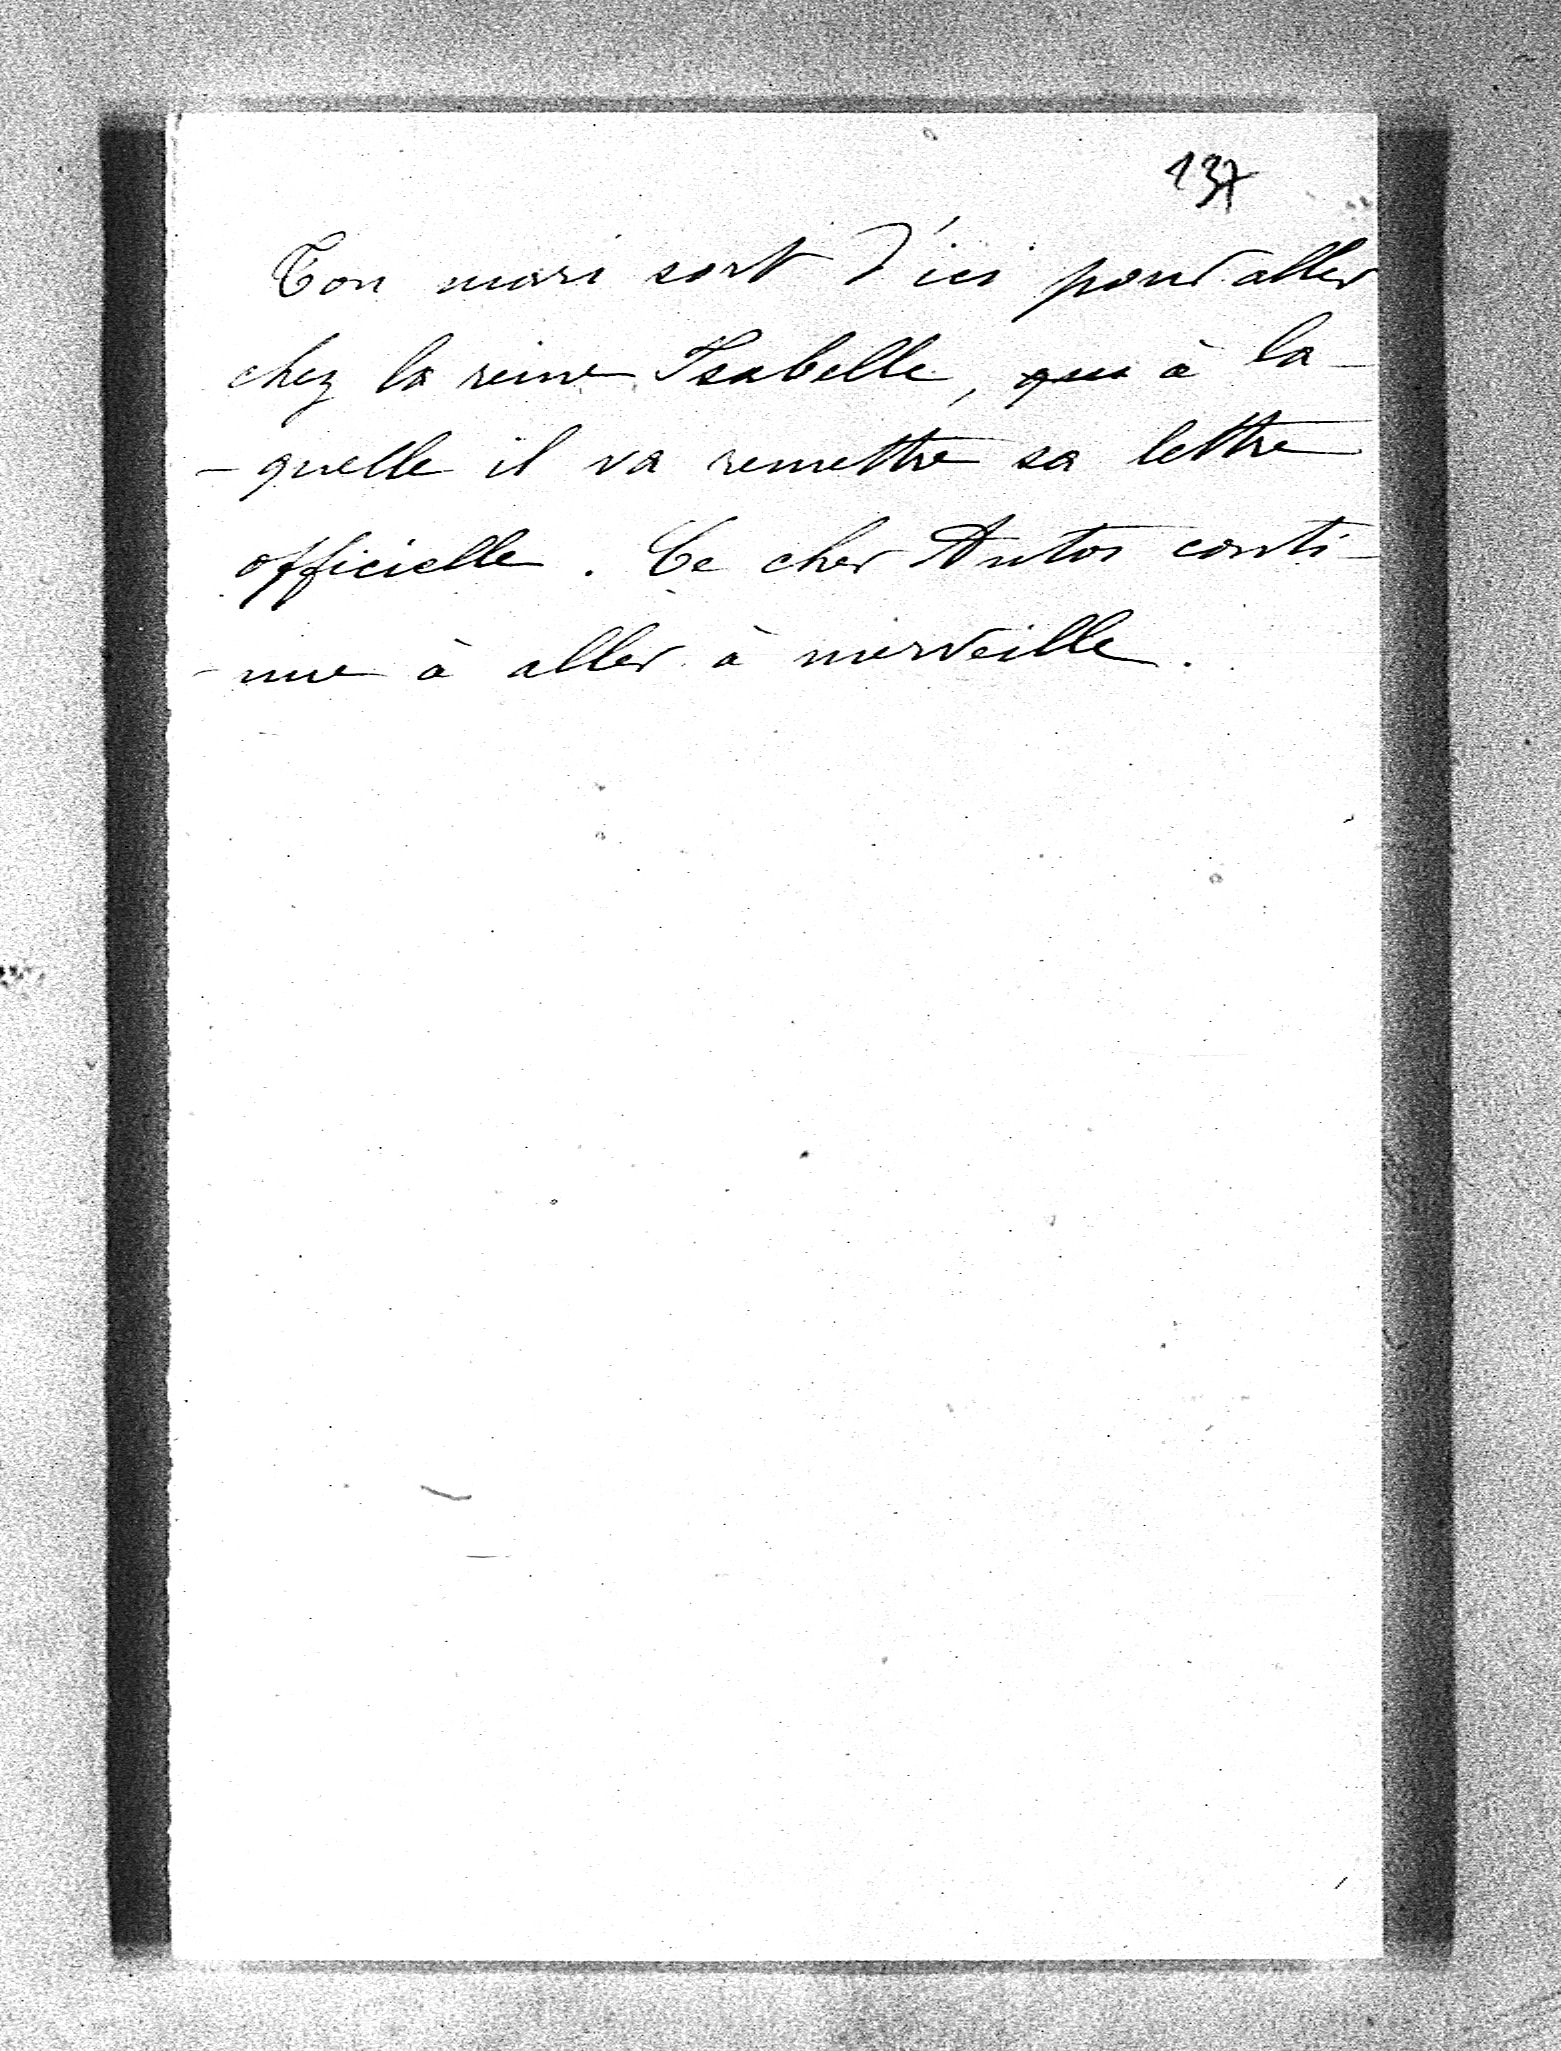 137
Ton mari sort d'ici pour aller
chez la reine Isabelle, qui à la-
-quelle il va remettre sa lettre
officielle. Ce cher Antos conti-
-nue à aller à merveille.